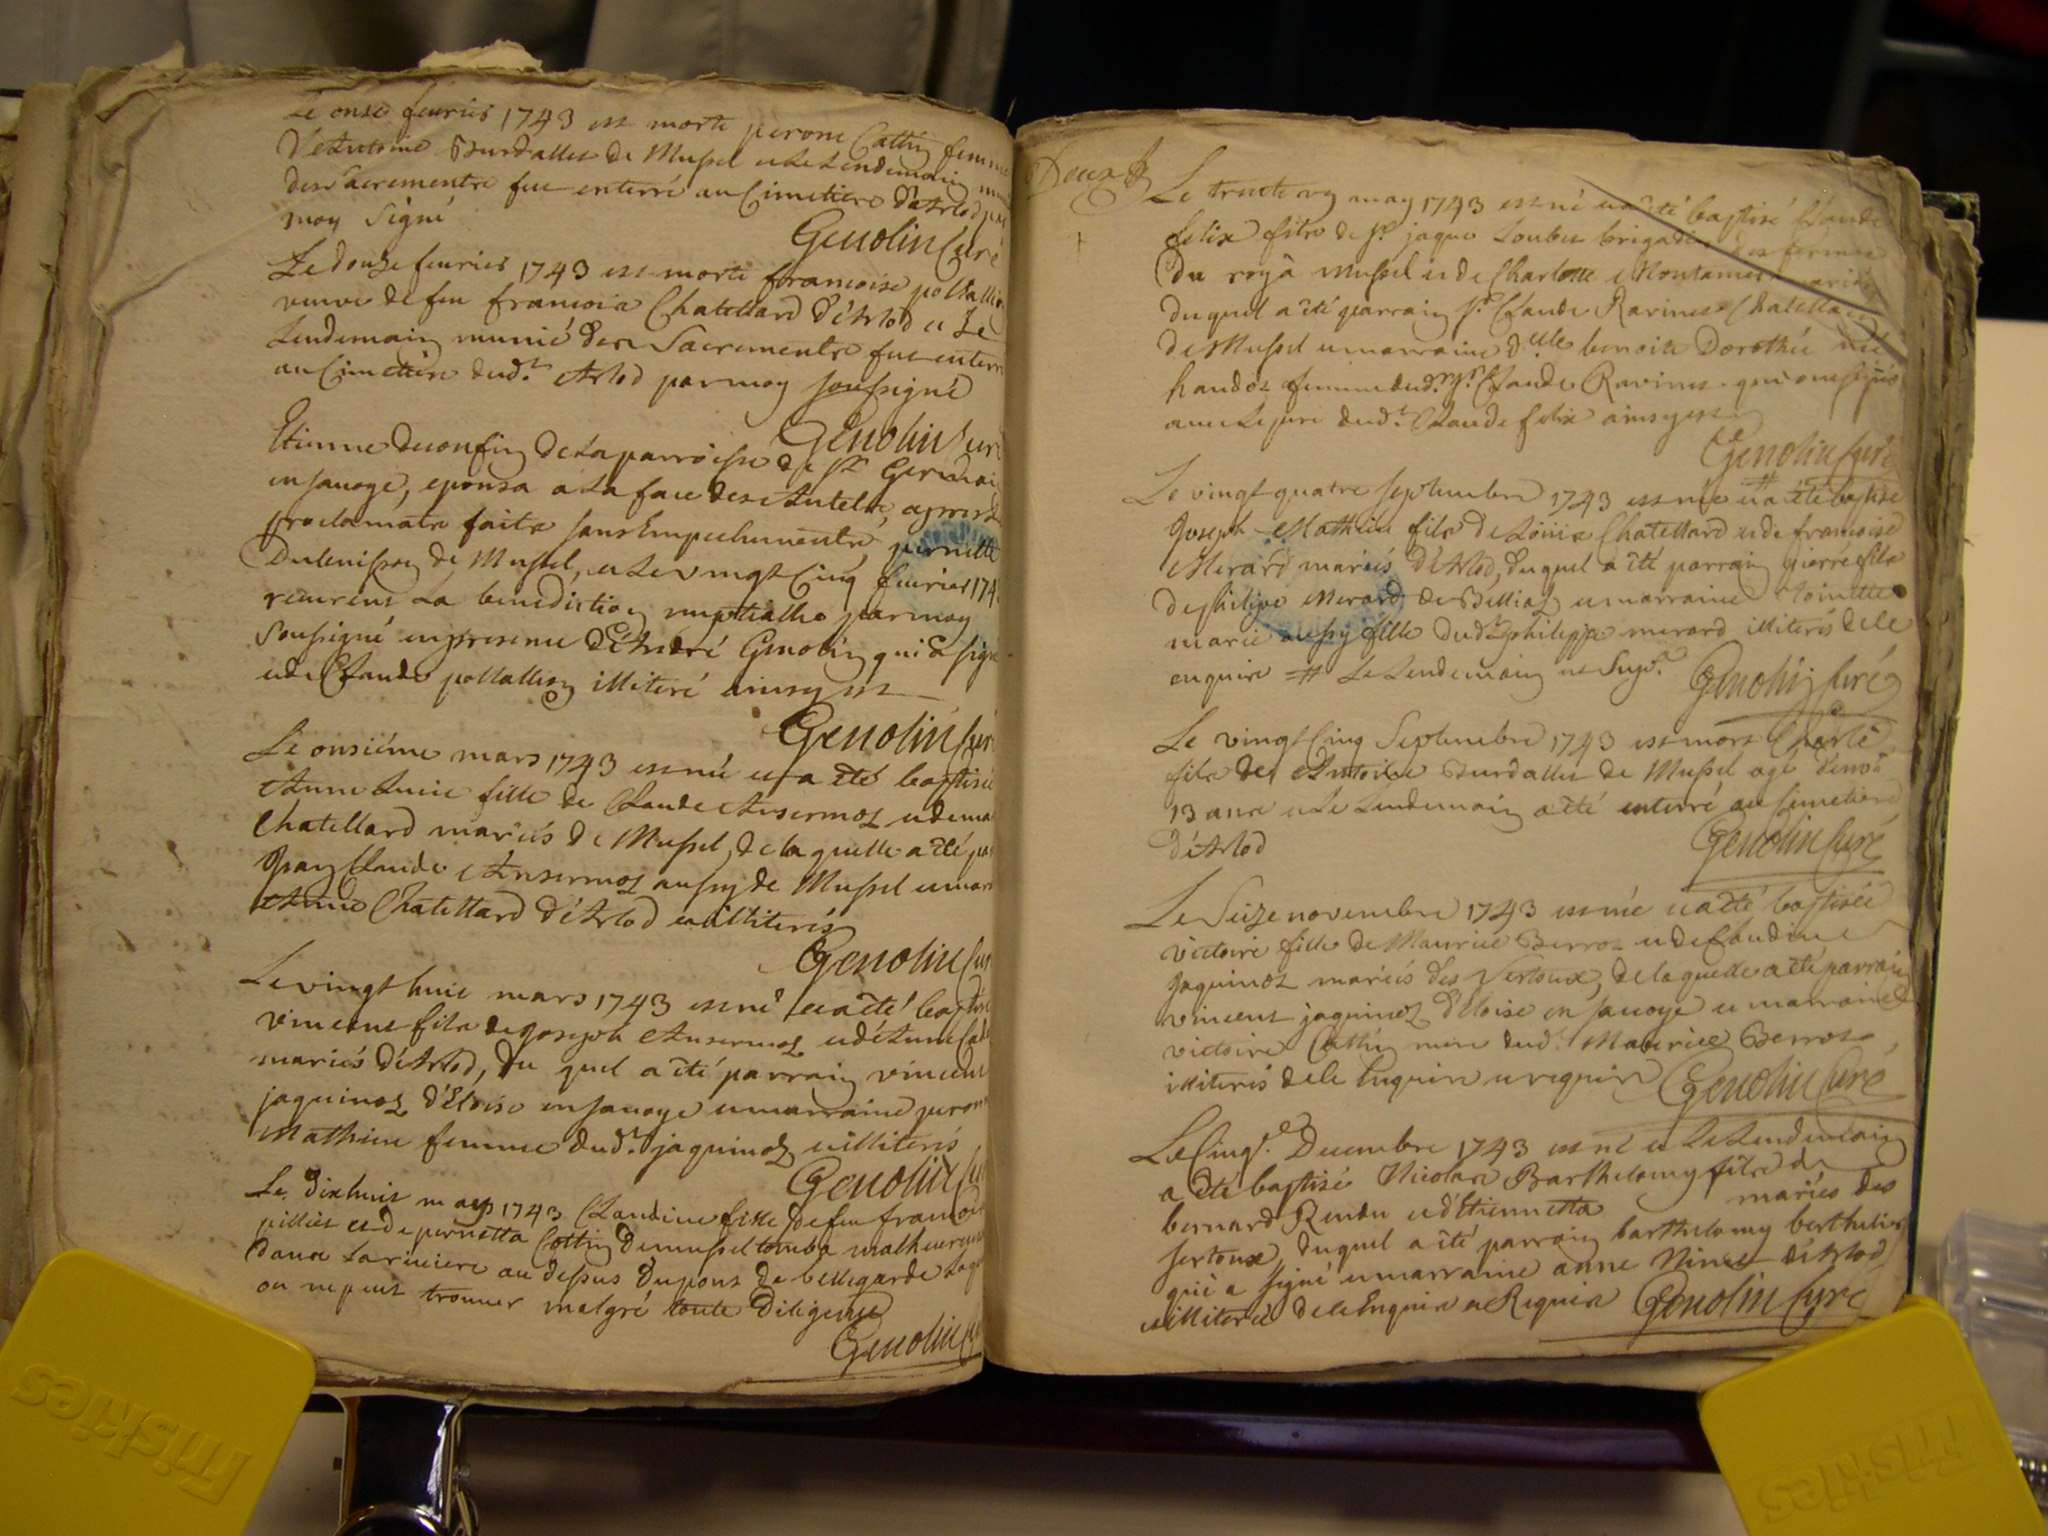 Le onse feurier 1743 est morte perone Cattin femme
D'Antoine Burdallet de Mussel et Le Lendemain
des Sacrements fut enterré au Cimetiere d'Arlod par
moy Signé
Genolin Curé
Le douze feurier 1743 est morte francoise
veuve de feu francois Chatellard d'Arlod et Le
Lendemain munie des Sacrements fut enterré
au Cimetiere dudt. Arlod par moy soussigné
Genolin Curé
Etienne de la parroisse de St Germain
en sauoye, epousa a La face des Autels, apres
proclamats faits sans Empechements, pernette
de Mussel, et Le vingt Cinq feurier 174
receurent La benediction nuptialle par moy
Soussigné en presence d'André Genolin qui a signé
et de Claude illiteré ainsy est
Genolin Curé
Le onsiéme mars 1743 est née et a été baptisée
Anne Lucie fille de Claude Ansermoz et de
Chatellard mariés de Mussel, de laquelle a été
Claude Ansermoz aussy de Mussel et
Anne Chatellard d'Arlod et illiterés
Genolin Curé
Le vingt huit mars 1743 est né et a été baptisé
vincent fils de Joseph Ansermoz et d'Anne
mariés d'Arlod, du quel a été parrain vincent
jaquinoz d'Eloise en sauoye et marraine perone
Mathieu femme dudt. jaquinoz et illiterés
Genolin Curé
Le dixhuit may 1743 Claudine fille de feu francois
et de pernetta Cottin de mussel tomba malheureusement
dans La riuiere au dessus du pont de bellegarde
on ne peut trouuer malgré toute diligence
Genolin Curé
Deux
Le trente un may 1743 est né et a été baptisé Claude
felix fils de sr. jaque Loubet brigadier des fermes
du roy a Mussel et de Charlotte Montamer mariés
du quel a été parrain sr. Claude Rauinet Chatellain
de Mussel et marraine dlle benoite Dorothée
femme dudt. sr. Claude Rauinet qui ont signés
auec Le pere dudt. Claude felix ainsy est
Genolin Curé
Le vingt quatre septembre 1743 est né et a été baptisé
Joseph Mathieu fils de Loüis Chatellard et de francoise
Merard mariés d'Arlod, du quel a été parrain pierre fils
de philipe Merard de Billiaz et marraine Toinette
marie aussy fille dudt philippe merard illiterés de ce
enquis # Le Lendemain
Genolin Curé
Le vingt Cinq Septembre 1743 est mort Charle
fils de Antoine Burdallet de Mussel agé d'env.
13 ans et Le Lendemain a été enterré au simetiere
d'Arlod
Genolin Curé
Le Seize novembre 1743 est née et a été baptisée
victoire fille de Maurice Berroz et de Claudine
jaquinoz mariés des Sertoux, de laquelle a été parrain
vincent jaquinoz d'Eloise en sauoye et marraine
victoire Cuttin mere dudt. Maurice Berroz
illiterés de ce Enquis et requis Genolin Curé
Le Cinq. Decembre 1743 est né et Le Lendemain
a été baptisé Nicolas Barthelemy fils de
bernard Rendu et d'Etiennetta mariés des
sertoux, du quel a été parrain barthelemy berthelier
qui a signé et marraine anne Ninet d'Arlod
illiterés de ce Enquis et Requis Genolin Curé
friskies
friskies